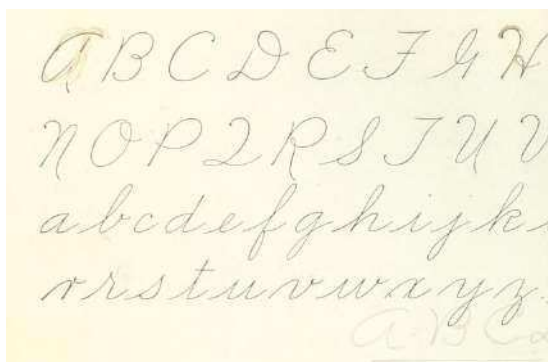 A B C D E F G H
N O P Q R S T U V
a b c d e f g h i j k
r r s t u v w x y z
A B C